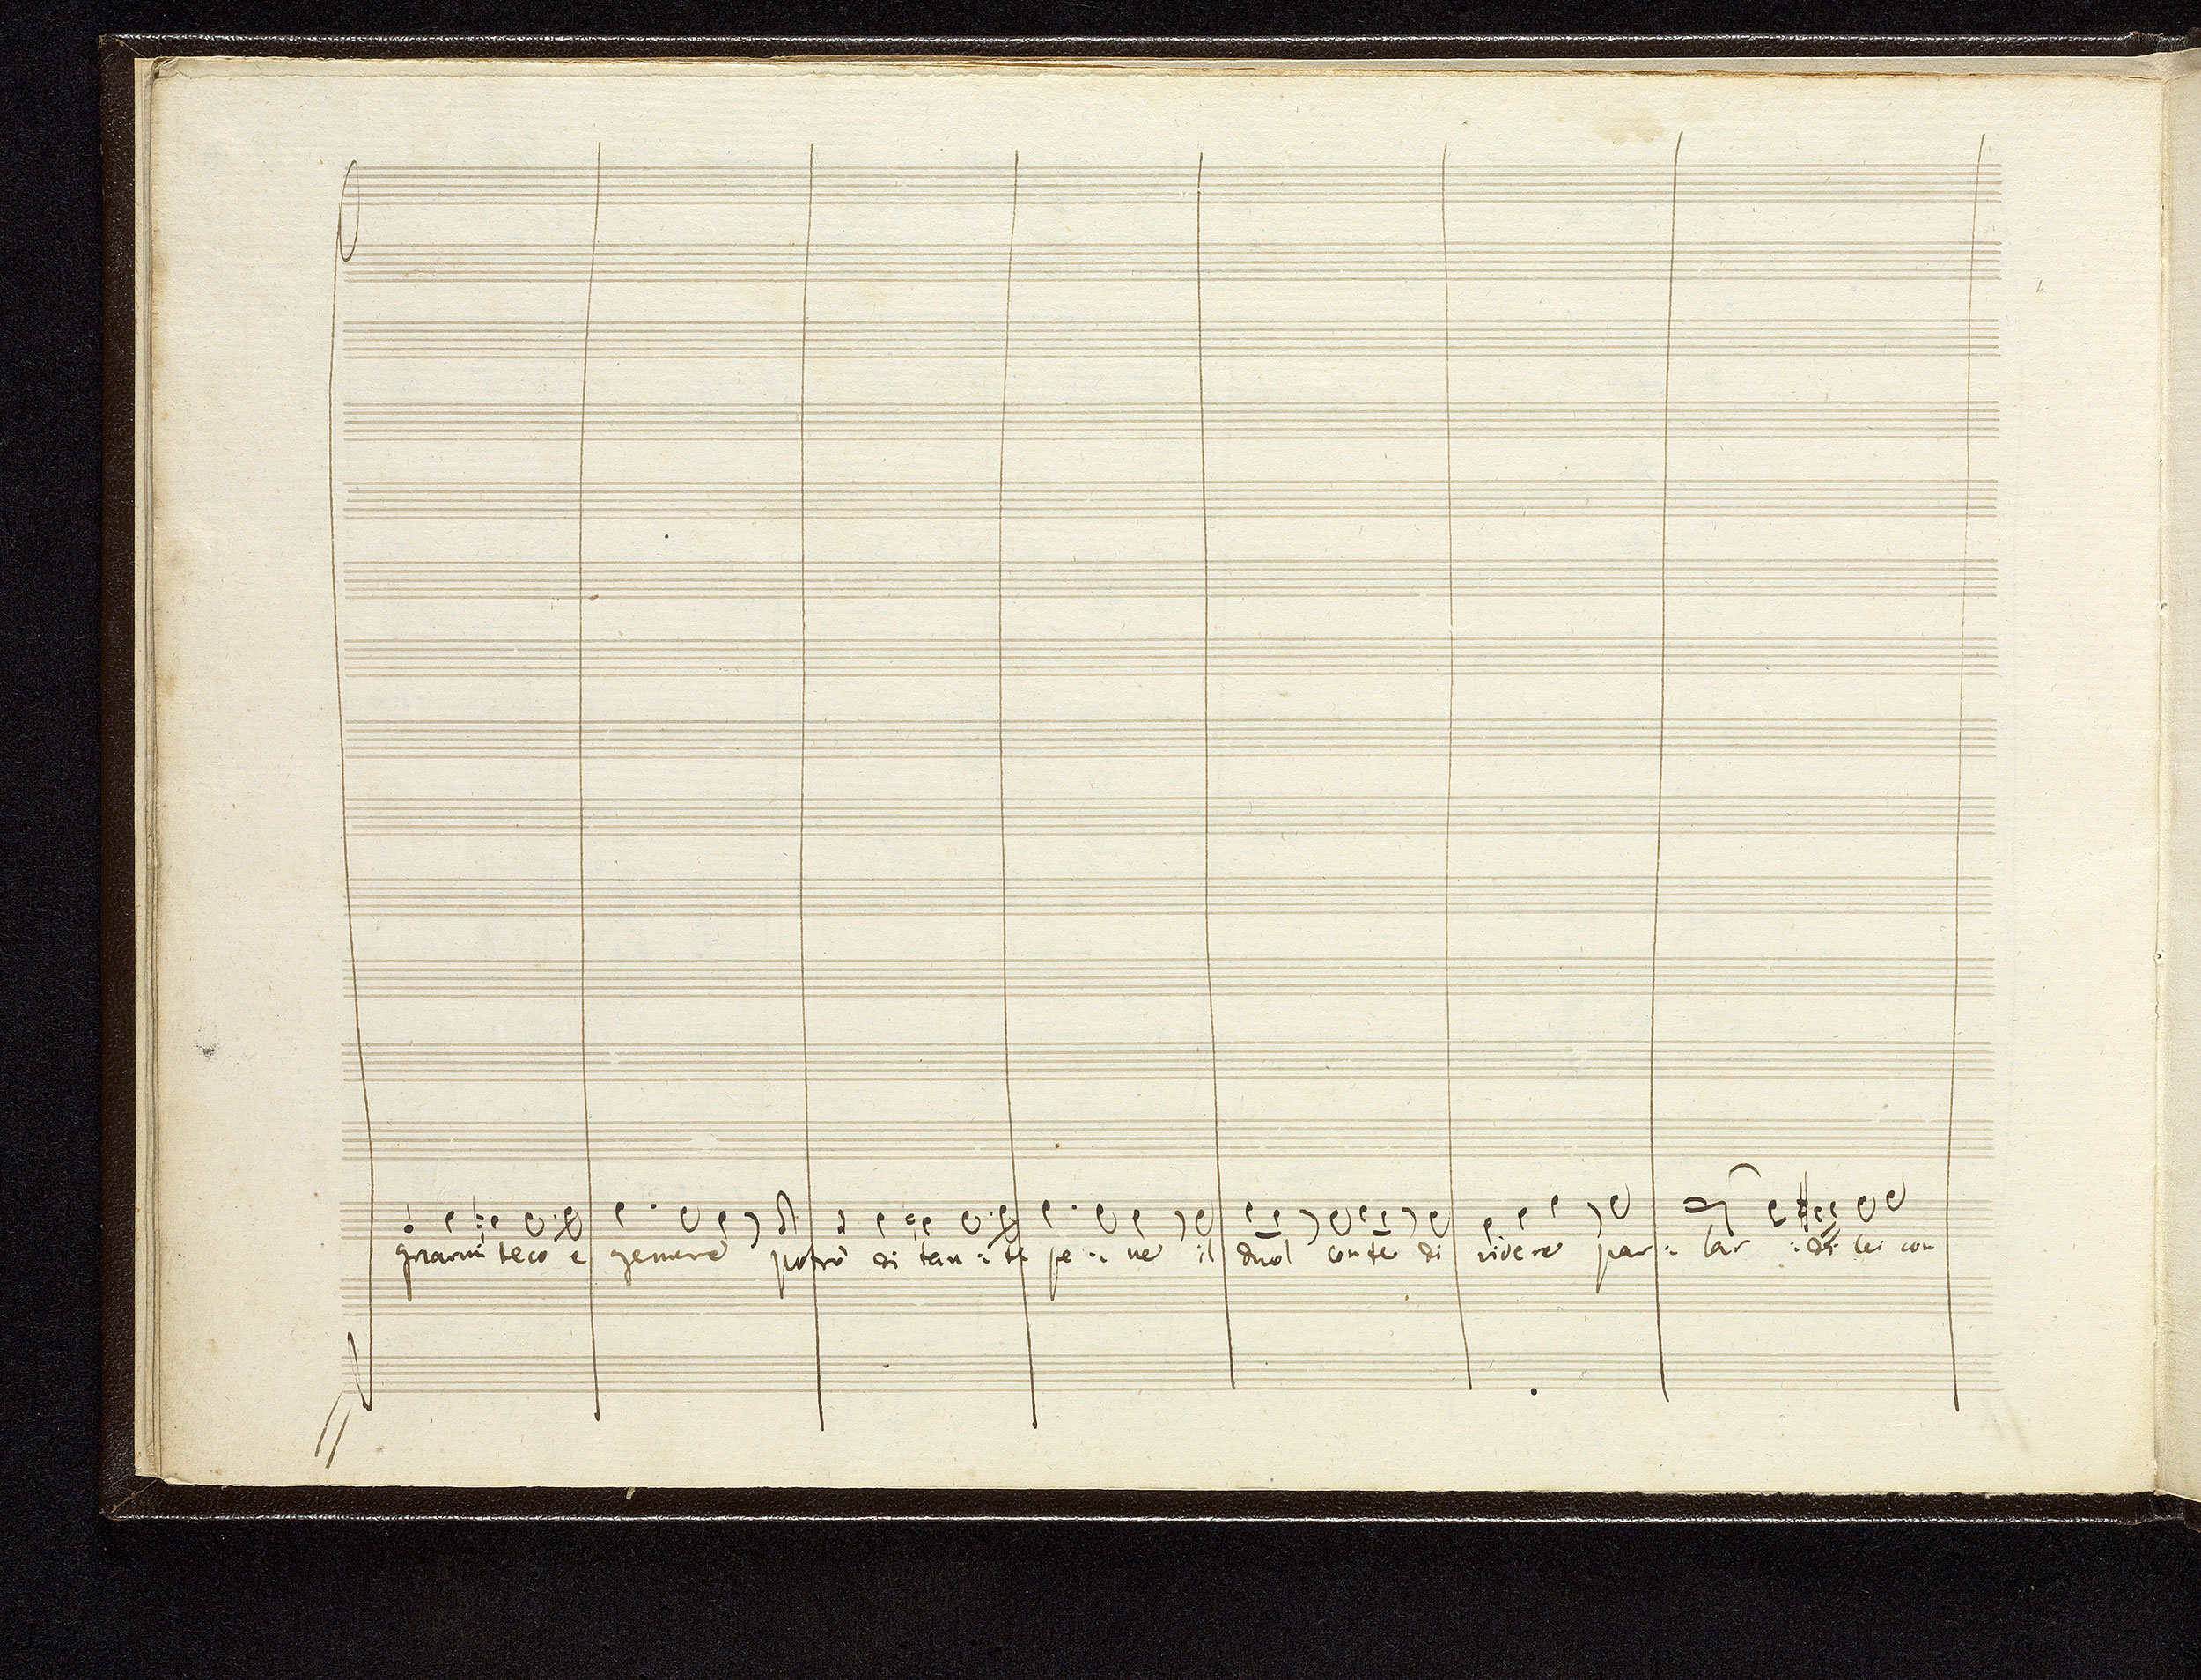 gnarmi teco e gemere potro di tan :: te pe :: ne il duol con te di videre par :: lar :: di lei con